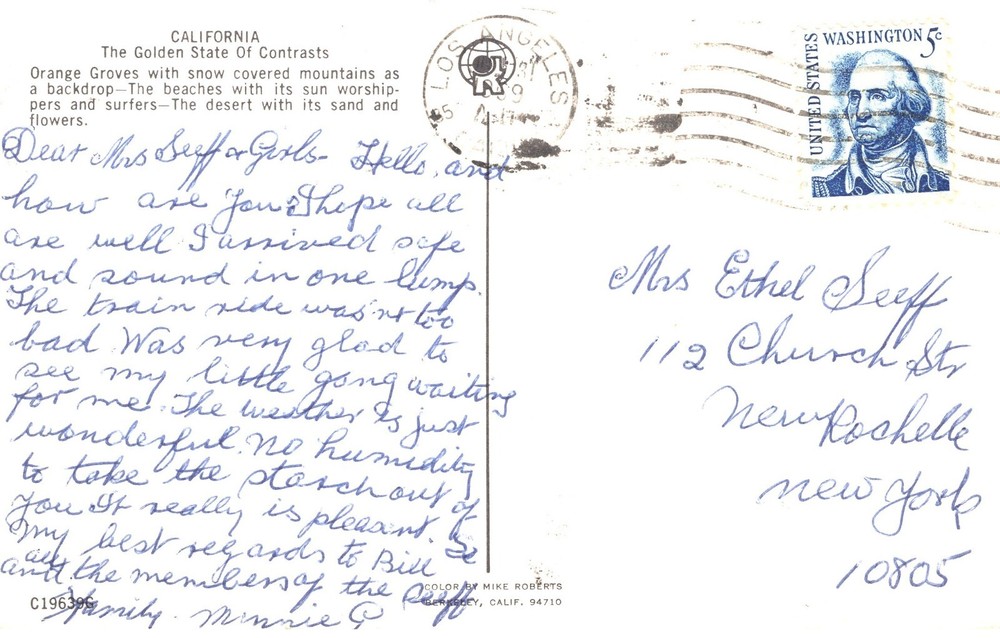 CALIFORNIA
The Golden State Of Contrasts
Orange Groves with snow covered mountains as
a backdrop—The beaches with its sun worship-
pers and surfers—The desert with its sand and
flowers.
Dear Mrs Seeff & Girls- Hello, and
how are you? I hope all
are well I arrived safe
and sound in one lump.
The train ride was'nt too
bad. Was very glad to
see my little gang waiting
for me. The weather is just
wonderful. No humidity
to take the starch out of
you It really is pleasant.
My best regards to Bill
and all the members of the Seeff
family. Minnie G
C19639
LOS ANGELES
UNITED STATES
WASHINGTON 5c
Mrs Ethel Seeff
112 Church Str
New Rochelle
New York
10805
COLOR BY MIKE ROBERTS
BERKELEY, CALIF. 94710